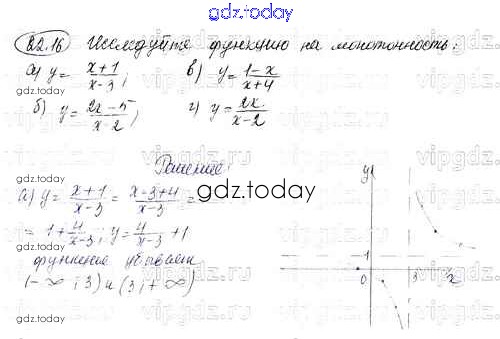 gdz.today
22.16 Исследуйте функцию на монотонность:
gdz.today
а) y = x+1/x-3; в) y = 1-x/x+4
б) y = 2x-5/x-2; г) y = 2x/x-2
gdz.today
Решение:
а) y = x+1/x-3 = x-3+4/x-3 =
gdz.today
= 1 + 4/x-3; y = 4/x-3 + 1
функция убывает
(-∞; 3) и (3; +∞)
gdz.today
y
1
0 3 x
vipgdz.ru